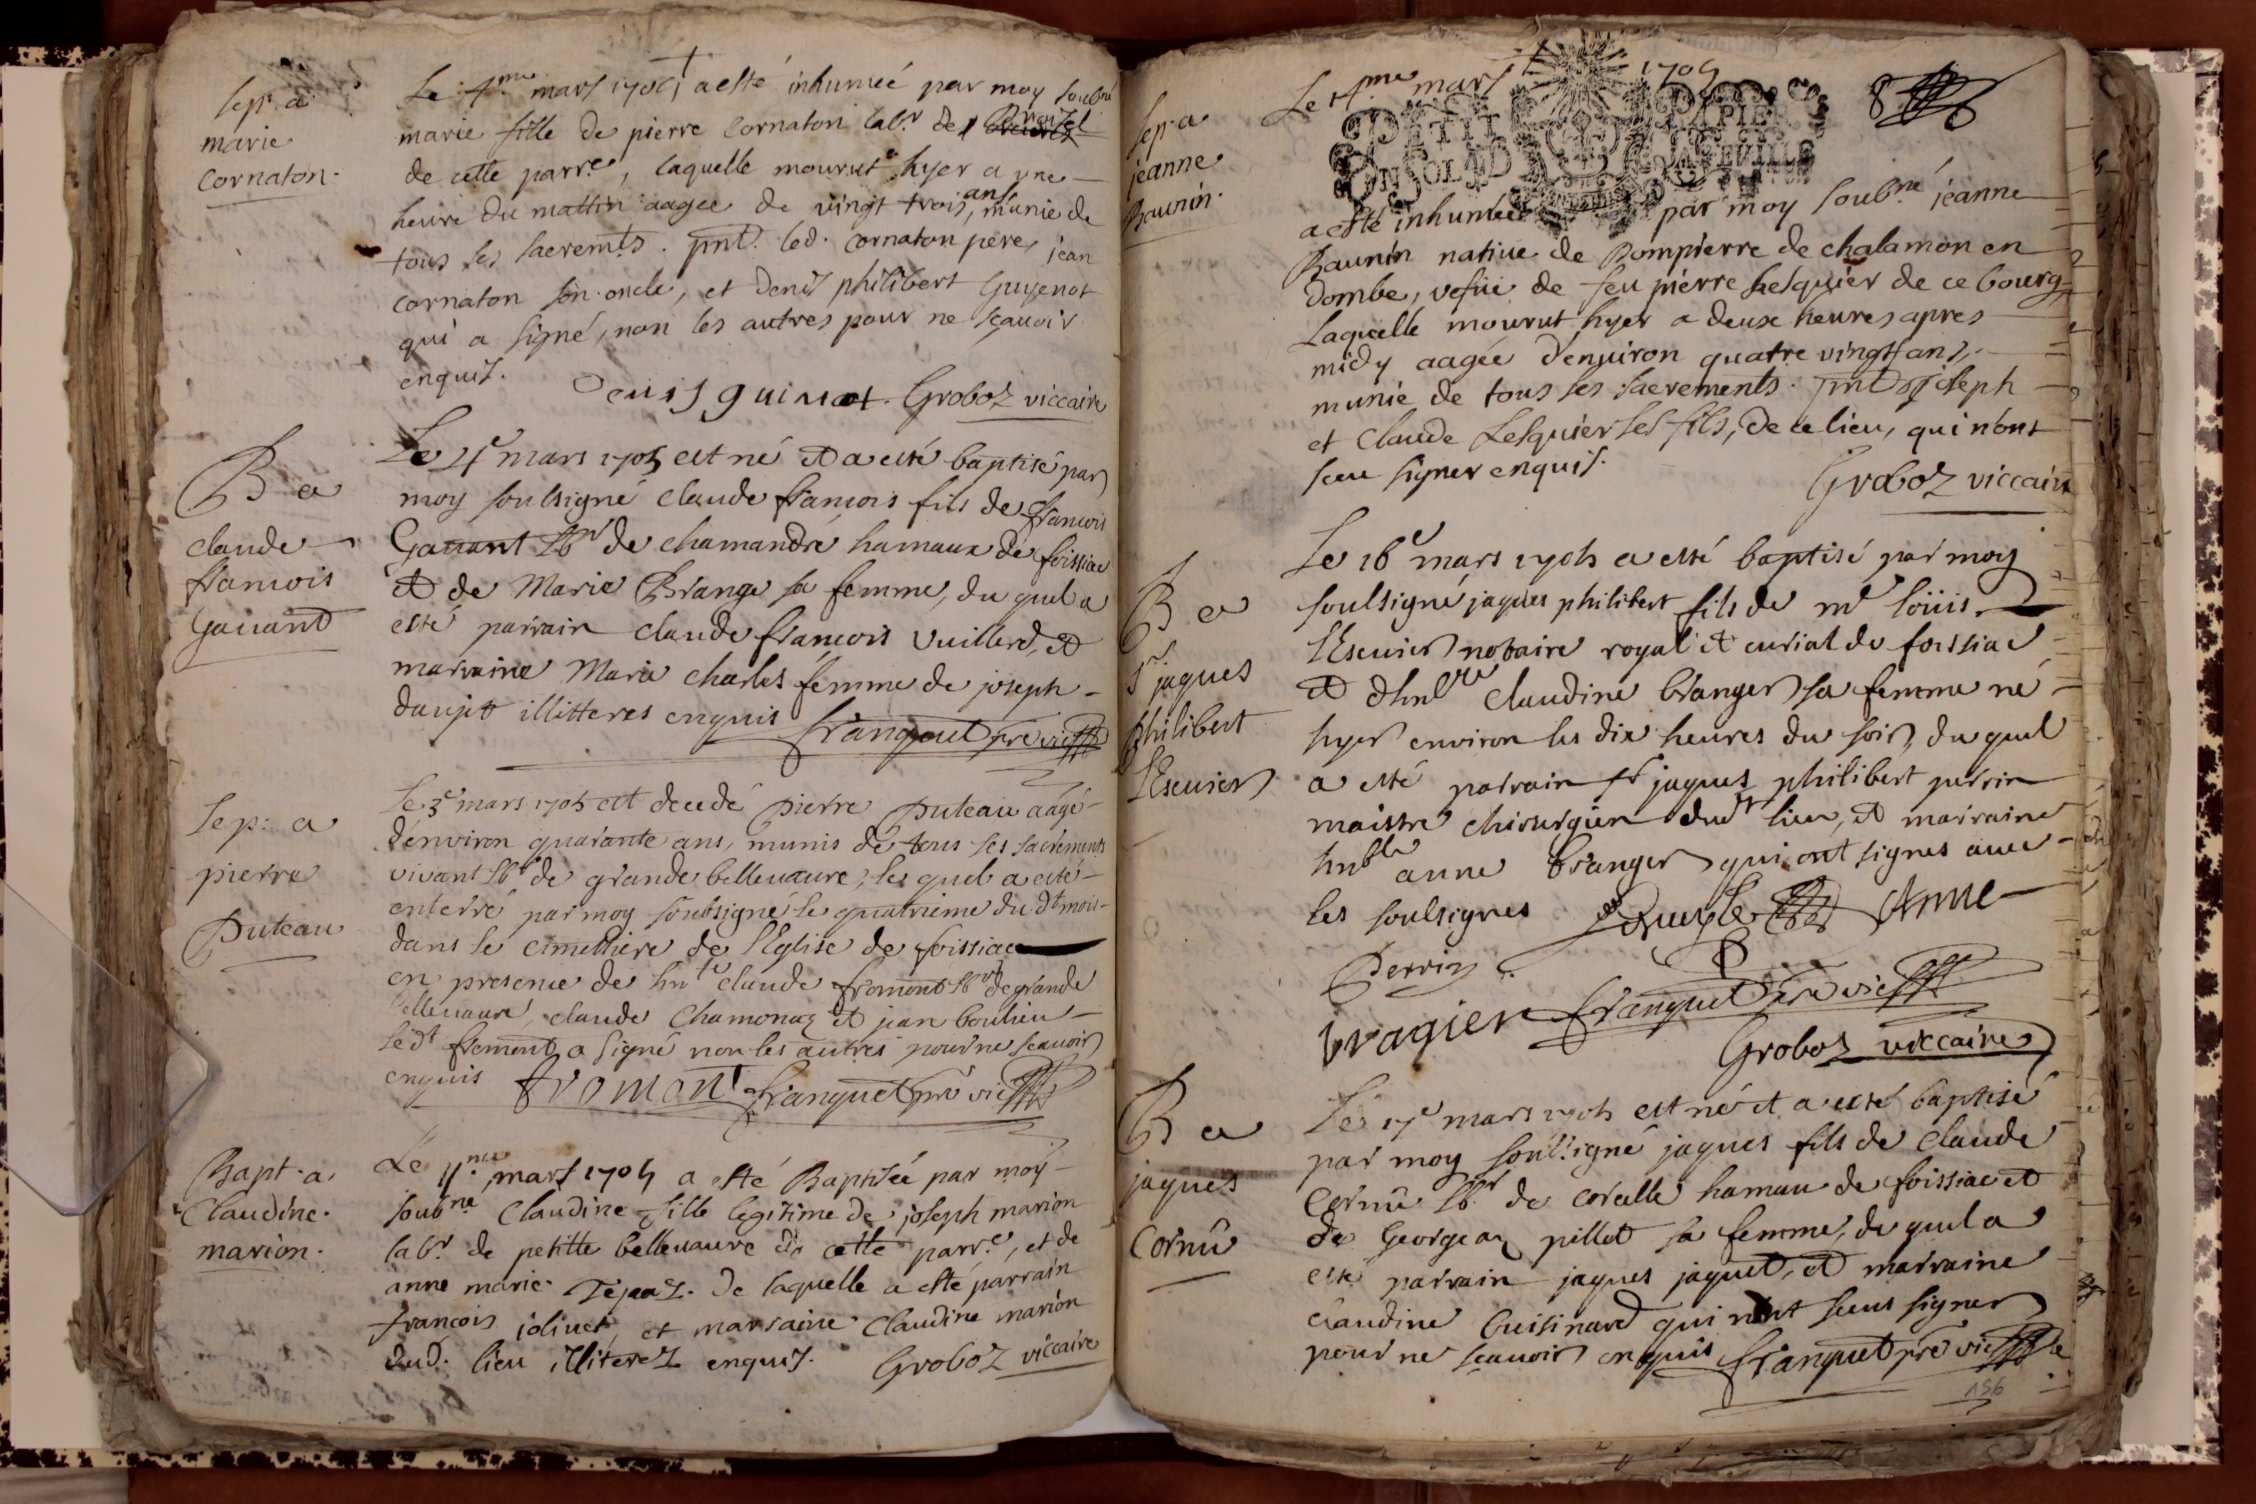 Sepr. a
marie
Cornaton.
Le 4.me mars 1705 a esté inhumée par moy soubné
marie fille de pierre Cornaton labr. de
de cette parre., laquelle mourut hyer a une
heure du mattin aagee de vingt trois ans, munie de
tous les sacremts. pnt. led. Cornaton pere, jean
cornaton son oncle, et denis philibert Guyenot
qui a signé, non les autres pour ne sçavoir
enquis. Denis guinot. Groboz viccaire
B a
claude
francois
Gavant
Le 4e mars 1705 est né et a esté baptisé par
moy soulsigné claude francois fils de francois
Gavant lbr de chamandré hamaux de foissiac
et de Marie Brange sa femme, du quel a
esté parrain claude francois Vuillerd, et
marraine Marie charles femme de joseph
daujat illitteres enquis franquet pre vic
Sep: a
pierre
Puteau
Le 3e mars 1705 est decedé pierre Puteau aagé
d'environ quarante ans, munis de tous ses sacrements
vivant lbr de grande bellevavre, le quel a esté
enterré par moy soubsigné le quatrieme du dt mois
dans le cimettiere de l'Eglise de foissiac
en presence de hnte claude fromont lbr de grande
bellevavre, claude Chamonaz et jean boulieu
le dt fromont a signé non les autres pour ne scavoir
enquis fromont franquet pre vic
Bapt. a
Claudine.
marion.
Le 11.me mars 1705 a esté Baptisée par moy
soubné. Claudine fille legitime de joseph marion
labr. de petitte bellevavre de cette parre., et de
anne marie Tejeaz. de laquelle a esté parrain
francois jolivet, et marraine Claudine marion
dud. lieu illiterez enquis. Groboz viccaire
Sep. a
jeanne
Baunin.
Le 14.me mars 1705 8
PETIT PAPIER
a esté inhumée par moy soubné. jeanne
Baunin native de Dompierre de chalamon en
dombe, vefüe de feu pierre Lesquier de ce bourg
Laquelle mourut hyer a deux heures apres
midy aagée d'environ quatre vingt ans,
munie de tous les sacrements. pnt joseph
et Claude Lesquier ses fils, de ce lieu, qui n'ont
sceu signer enquis.
Groboz viccaire
B a
Sr jaques
philibert
l'Escuier
Le 16e mars 1705 a esté baptisé par moy
soulsigné jaques philibert fils de me loüis
l'Escuier notaire royal et curial de foissiac
et d'hnble Claudine branger sa femme né
hyer environ les dix heures du soir, du quel
a esté parrain sr jaques philibert perrin
maistre chirurgien dudt lieu, et marraine
hnble anne branger qui ont signés avec
les soulsignes Anne
Perrin
bragier franquet pre vic
Groboz viccaire
B a
jaques
Cornû
Le 17e mars 1705 est né et a esté baptisé
par moy soulsigné jaques fils de Claude
Cornû lbr de corcelle hamau de foissiac et
de Georgeaz pillot sa femme, du quel a
esté parrain jaques jaquet, et marraine
claudine Cuisinard qui n'ont sceus signer
pour ne sçavoir enquis franquet pre vic
156